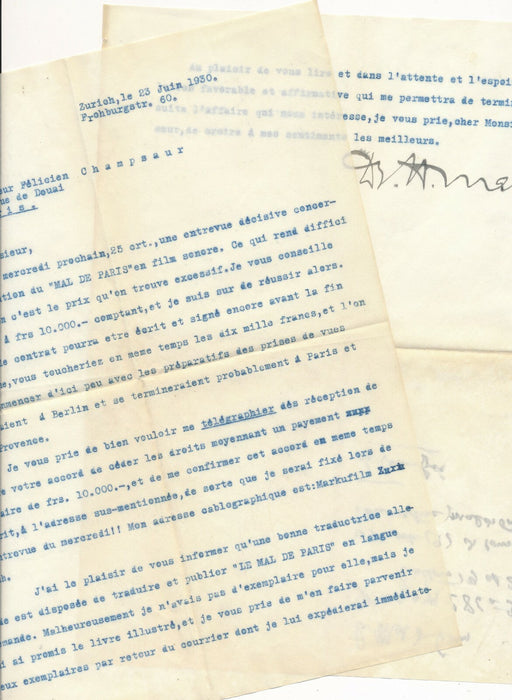 Zurich,le 23 Juin 1930.
Frohburgstr. 60.
eur Félicien Champsaur
ue de Douai
ris.
sieur,
mercredi prochain,25 crt.,une entrevue décisive concer-
ation du "MAL DE PARIS"en film sonore. Ce qui rend diffici
n c'est le prix qu'on trouve excessif.Je vous conseille
à frs 10.000.- comptant,et je suis sur de réussir alors.
e contrat pourra etre écrit et signé encore avant la fin
e,vous toucheriez en meme temps les dix mille francs,et l'on
mmencer d'ici peu avec les préparatifs des prises de vues
aient à Berlin et se termineraient probablement à Paris et
Provence.
Je vous prie de bien vouloir me télégraphier dès réception de
e votre accord de céder les droits moyennant un payement
aire de frs. 10.000.-,et de me confirmer cet accord en meme temps
rit,à l'adresse sus-mentionnée,de sorte que je serai fixé lors de
ntrevue du mercredi!! Mon adresse cablographique est:Markufilm Zurk
h.
J'ai le plaisir de vous informer qu'une bonne traductrice alle-
de est disposée de traduire et publier "LE MAL DE PARIS" en langue
mande. Malheureusement je n'avais pas d'exemplaire pour elle,mais je
i ai promis le livre illustré,et je vous prie de m'en faire parvenir
eux exemplaires par retour du courrier dont je lui expédierai immédiate-
Au plaisir de vous lire et dans l'attente et l'espoi
favorable et affirmative qui me permettra de termin
suite l'affaire qui nous intéresse,je vous prie,cher Monsi
eur,de croire à mes sentiments les meilleurs.